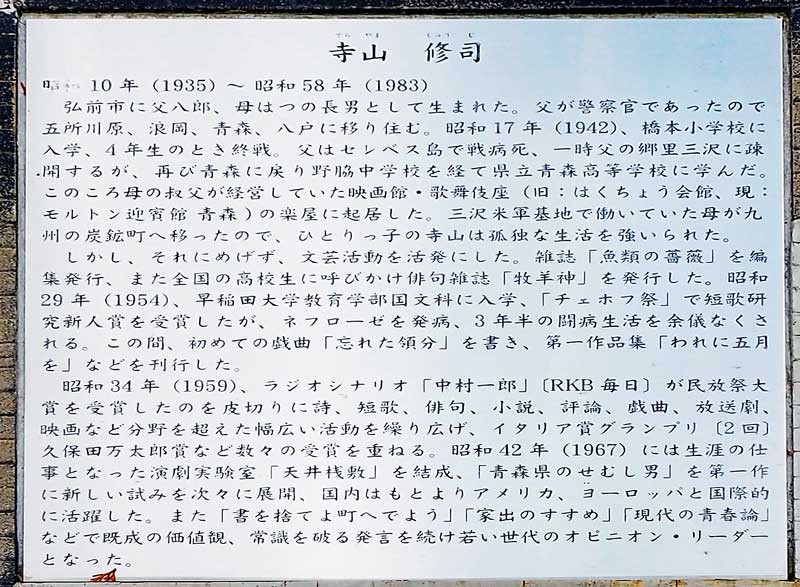 てら やま しゅう じ
寺山 修司
昭和 10 年 (1935) ～ 昭和 58 年 (1983)
弘前市に父八郎、母はつの長男として生まれた。父が警察官であったので
五所川原、浪岡、青森、八戸に移り住む。昭和 17 年 (1942)、橋本小学校に
入学、4 年生のとき終戦。父はセレベス島で戦病死、一時父の郷里三沢に疎
開するが、再び青森に戻り野脇中学校を経て県立青森高等学校に学んだ。
このころ母の叔父が経営していた映画館・歌舞伎座 (旧：はくちょう会館、現：
モルトン迎賓館 青森) の楽屋に起居した。三沢米軍基地で働いていた母が九
州の炭鉱町へ移ったので、ひとりっ子の寺山は孤独な生活を強いられた。
しかし、それにめげず、文芸活動を活発にした。雑誌「魚類の薔薇」を編
集発行、また全国の高校生に呼びかけ俳句雑誌「牧羊神」を発行した。昭和
29 年 (1954)、早稲田大学教育学部国文科に入学、「チェホフ祭」で短歌研
究新人賞を受賞したが、ネフローゼを発病、3 年半の闘病生活を余儀なくさ
れる。この間、初めての戯曲「忘れた領分」を書き、第一作品集「われに五月
を」などを刊行した。
昭和 34 年 (1959)、ラジオシナリオ「中村一郎」〔RKB 毎日〕が民放祭大
賞を受賞したのを皮切りに詩、短歌、俳句、小説、評論、戯曲、放送劇、
映画など分野を超えた幅広い活動を繰り広げ、イタリア賞グランプリ〔2 回〕
久保田万太郎賞など数々の受賞を重ねる。昭和 42 年 (1967) には生涯の仕
事となった演劇実験室「天井桟敷」を結成、「青森県のせむし男」を第一作
に新しい試みを次々に展開、国内はもとよりアメリカ、ヨーロッパと国際的
に活躍した。また「書を捨てよ町へでよう」「家出のすすめ」「現代の青春論」
などで既成の価値観、常識を破る発言を続け若い世代のオピニオン・リーダー
となった。